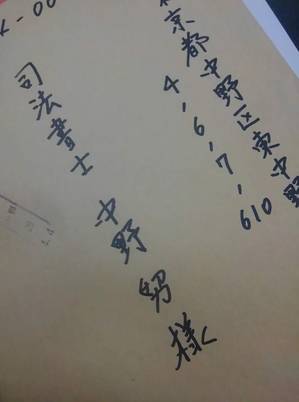 京都中野区東中野
4,6,7,610
司法書士
中野 男様